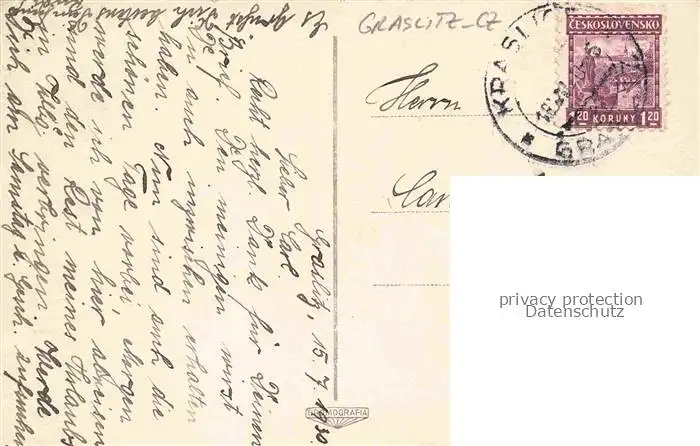 GRASLITZ-CZ
KRASLI
GRAS
ČESKOSLOVENSKO
1.20 KORUNY 1.20
Herrn
Car
privacy protection
Datenschutz
DERMOGRAFIA
Graslitz, 15. 7. 1930
Lieber Carl.
Recht herzl. Dank für Deinen
Brief. Den meinigen wirst
Du auch inzwischen erhalten
haben. Nun sind auch die
schönen Tage vorbei, Morgen
werde ich von hier abreisen
und den Rest meines Urlaubs
in verbringen. Werde
Dich am Samstag
Es grüsst Dich bestens Dein